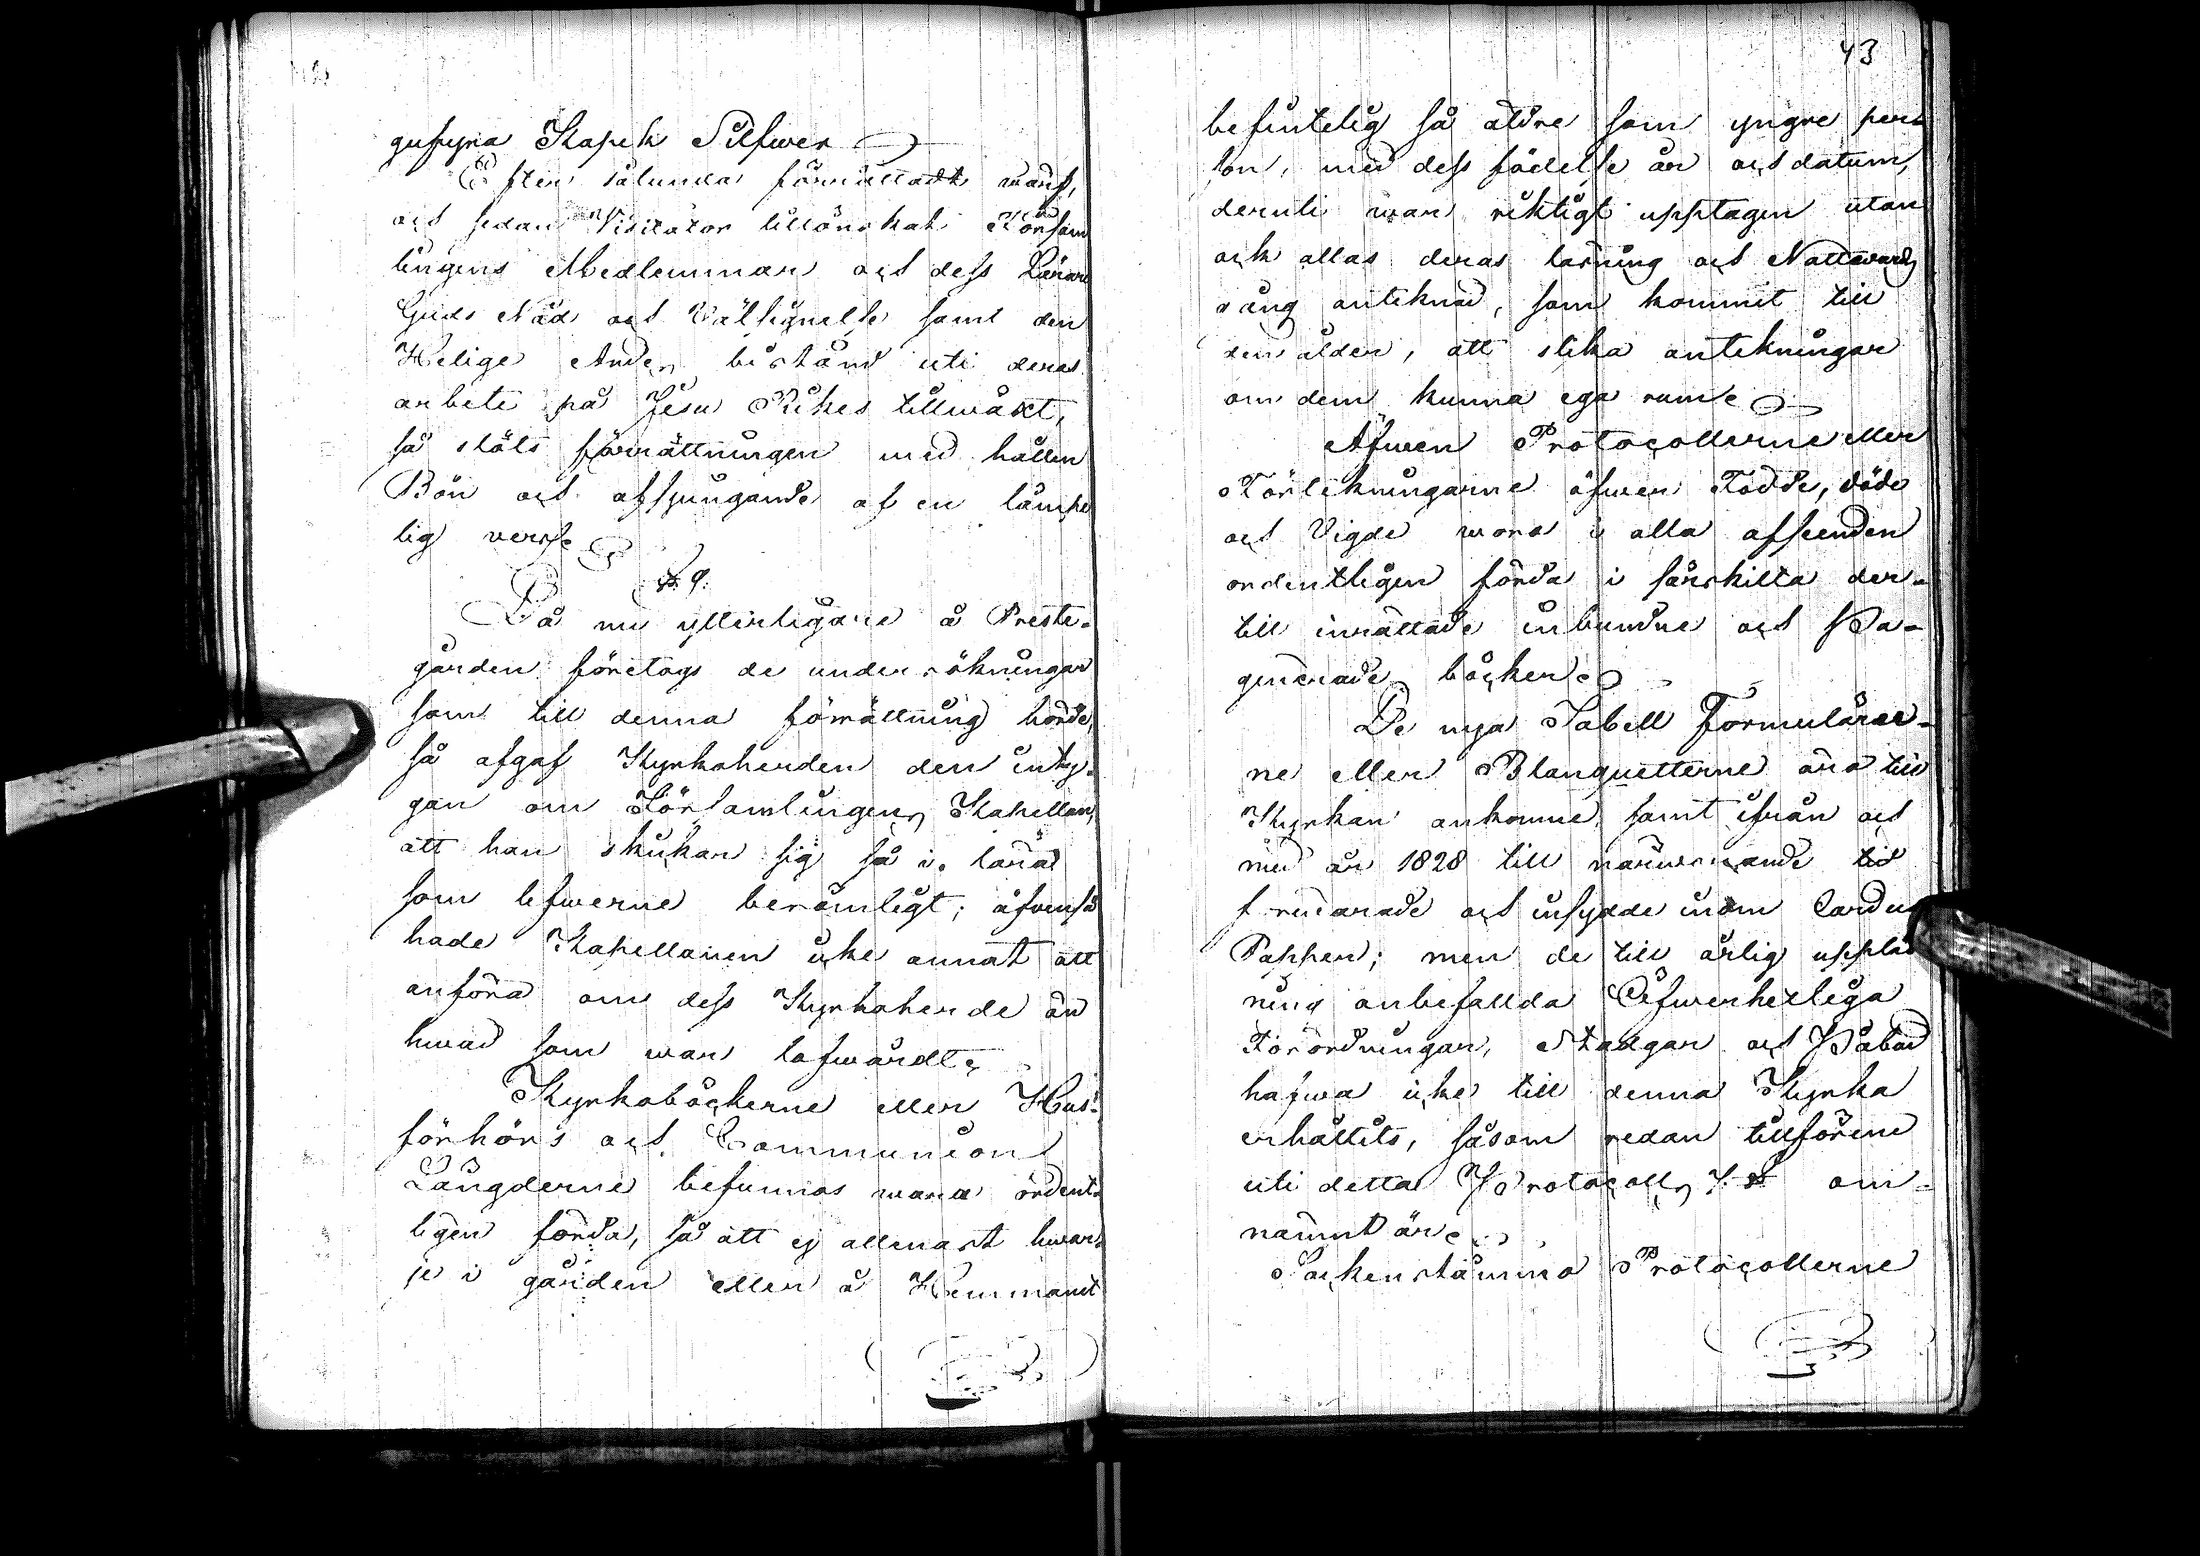 gufyra Kopek Silfwer
Efter sålunda förrättadt warf,
och sedan Visitator tillönskat Försam
lingens Medlemmar och dess Lärare
Guds Nåd och Välsignelse samt den
Helige Andes bistånd uti deras
arbete på Jesu Rikes tillwäxt,
så slöts förrättningen med hållen
Bön och afsjungande af en lämpe
lig vers.
§ 9.
Då nu ytterligare å Preste-
gården företogs de undersökningar
som till denna förrättning hörde,
så afgaf Kyrkoherden den inty-
gan om Församlingens Kapellan,
att han skickar sig så i lära
som lefwerne berömligt; äfvenså
hade Kapellanen icke annat att
anföra om dess Kyrkoherde än
hwad som war lofwärdt.
Kyrkoböckerne eller Hus-
förhörs och Communion
Längderne befunnos wara ordent-
ligen förda, så att ej allenast hwar-
je i gården eller å Hemmanet
43
befintelig så äldre som yngre per-
son, med dess födelse år och datum,
deruti war riktigt upptagen utan
ock allas deras läsning och Nattwards
gång anteknad, som kommit till
den ålder, att slika antekningar
om dem kunna ega rum.
Äfwen Protocollerne eller
Förtekningarne öfwer Födde, döde
och Vigde woro i alla afseenden
ordentligen förda i särskilta der-
till inrättade inbundne och Pa-
ginerade böcker.
De nya Tabell Formulärer-
ne eller Blanquetterne äro till
Kyrkan ankomne, samt ifrån och
med år 1828 till närwarande tid
förwarade och insydde inom Cardus
Papper; men de till årlig uppläs
ning anbefallda Öfwerhetliga
Förordningar, Stadgar och Påbud
hafwa icke till denna Kyrka
erhållits, såsom redan tillförene
uti detta Protocolls om-
nämnt är.
Sockenstämmo Protocollerne